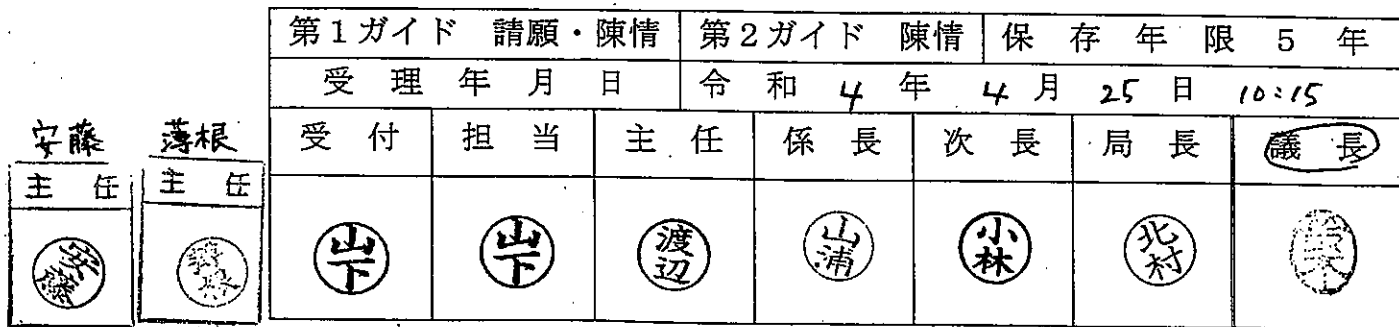 第1ガイド 請願・陳情 第2ガイド 陳情 保存年限5年
受理年月日 令和4年4月25日 10:15
安藤 薄根 受付 担当 主任 係長 次長 局長 議長
主任 主任
安藤 山下 山下 渡辺 山浦 小林 北村